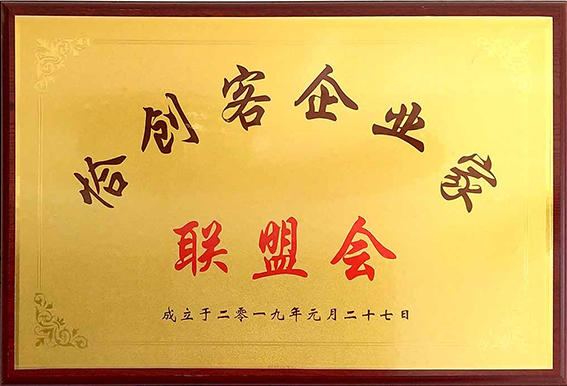 创客企业家
联盟会
成立于二零一九年元月二十七日